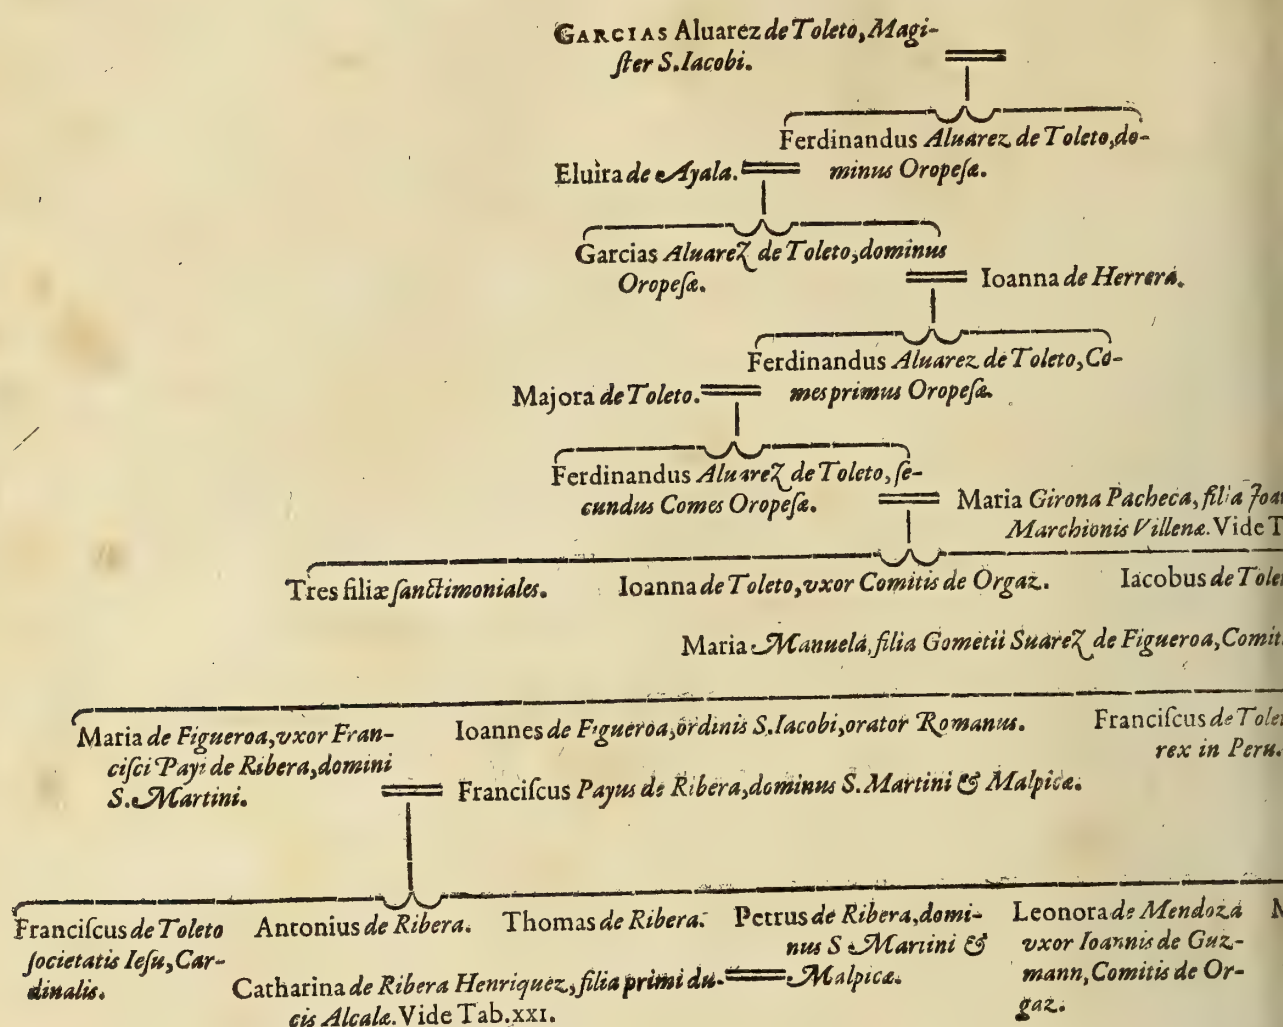 GARCIAS Aluarez de Toleto, Magi-
ſter S. Iacobi.
Ferdinandus Aluarez de Toleto, do-
minus Oropeſæ.
Eluira de Ayala.
Garcias Aluarez de Toleto, dominus
Oropeſæ.
Ioanna de Herrera.
Ferdinandus Aluarez de Toleto, Co-
mes primus Oropeſæ.
Majora de Toleto.
Ferdinandus Aluarez de Toleto, ſe-
cundus Comes Oropeſæ.
Maria Girona Pacheca, filia Joan
Marchionis Villenæ. Vide T
Tres filiæ ſanctimoniales.
Ioanna de Toleto, vxor Comitis de Orgaz.
Iacobus de Tole
Maria Manuela, filia Gometii Suarez de Figueroa, Comit
Maria de Figueroa, vxor Fran-
ciſci Payi de Ribera, domini
S. Martini.
Ioannes de Figueroa, ordinis S. Iacobi, orator Romanus.
Franciſcus de Tole
rex in Peru.
Franciſcus Payus de Ribera, dominus S. Martini & Malpicæ.
Franciſcus de Toleto
ſocietatis Ieſu, Car-
dinalis.
Antonius de Ribera.
Thomas de Ribera.
Petrus de Ribera, domi-
nus S Martini &
Malpicæ.
Catharina de Ribera Henriquez, filia primi du-
cis Alcalæ. Vide Tab. XXI.
Leonora de Mendoza
vxor Ioannis de Guz-
mann, Comitis de Or-
gaz.